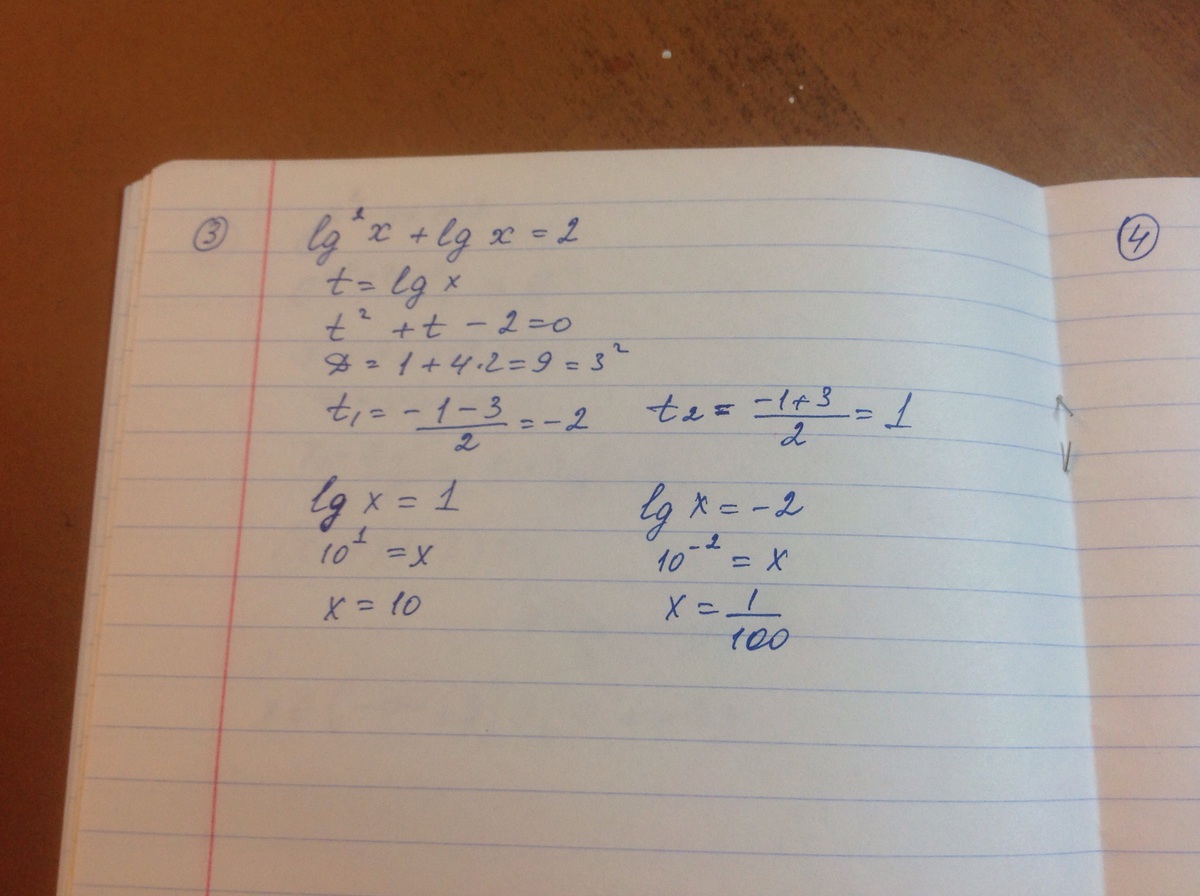 ③ lg²x + lg x = 2
t = lg x
t² + t - 2 = 0
D = 1 + 4·2 = 9 = 3²
t₁ = \frac{-1-3}{2} = -2 t₂ = \frac{-1+3}{2} = 1
lg x = 1 lg x = -2
10¹ = x 10⁻² = x
x = 10 x = \frac{1}{100}
④